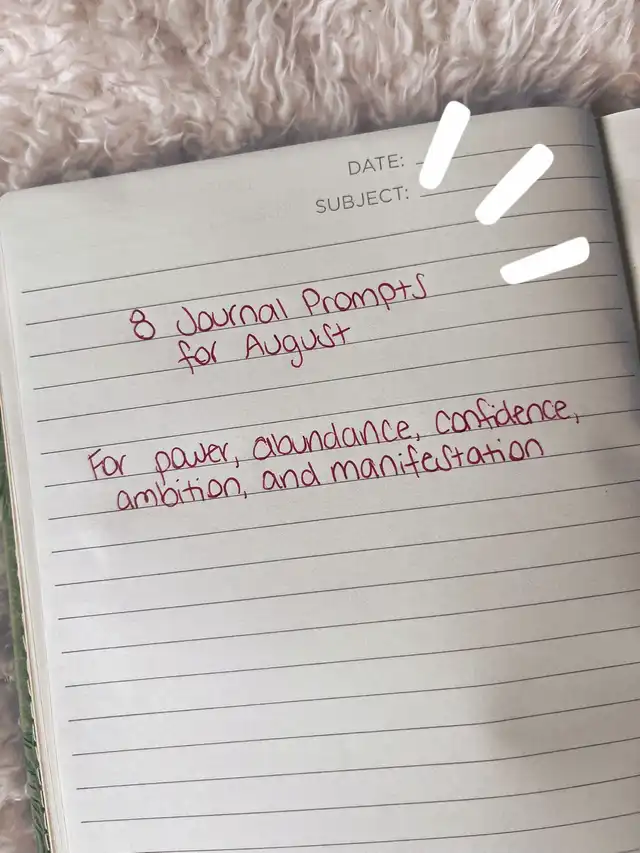 DATE:
SUBJECT:
8 Journal Prompts
for August
For power, abundance, confidence,
ambition, and manifestation